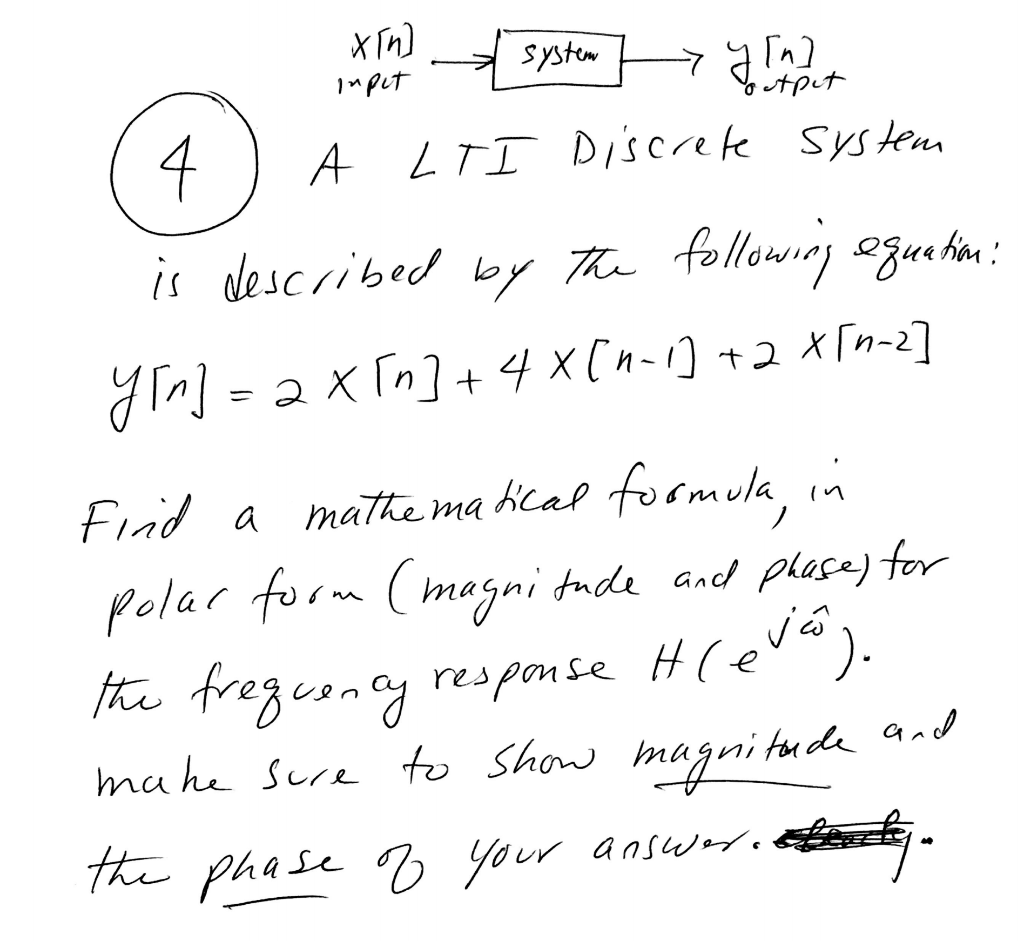 x[n] → system → y[n]
input output
4 A LTI Discrete System
is described by the following equation:
y[n] = 2 x[n] + 4 x[n-1] + 2 x[n-2]
Find a mathematical formula, in
polar form (magnitude and phase) for
the frequency response H(e^{jω̂}).
make sure to show magnitude and
the phase of your answer.